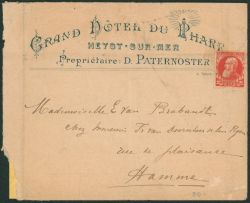 GRAND HÔTEL DU PHARE
HEYST-SUR-MER
Propriétaire: D. PATERNOSTER
Mademoiselle E. van Brabandt
chez
rue de plaisance
Hamme